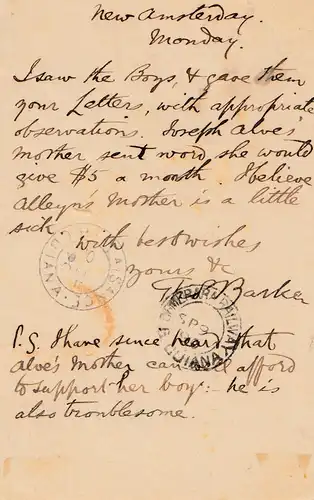 New Amsterday.
Monday.
I saw the Boys, & gave them
your Letters, with appropriate
observations. Joseph Alve's
mother sent word, she would
give $5 a month. I believe
Alleyns Mother is a little
sick
with best wishes
yours &
Barker
P.S. I have since heard that
Alve's Mother can afford
to support her boy:- he is
also troublesome.
RAILWAY